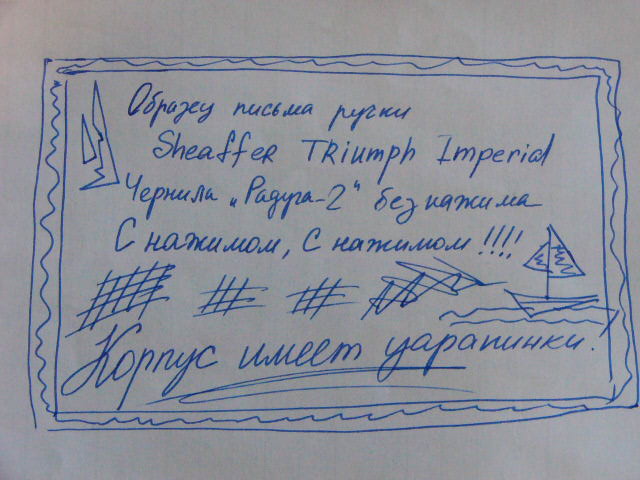 Образец письма ручки
Sheaffer Triumph Imperial
Чернила „Радуга-2" без нажима
С нажимом, С нажимом !!!!
Корпус имеет царапинки.